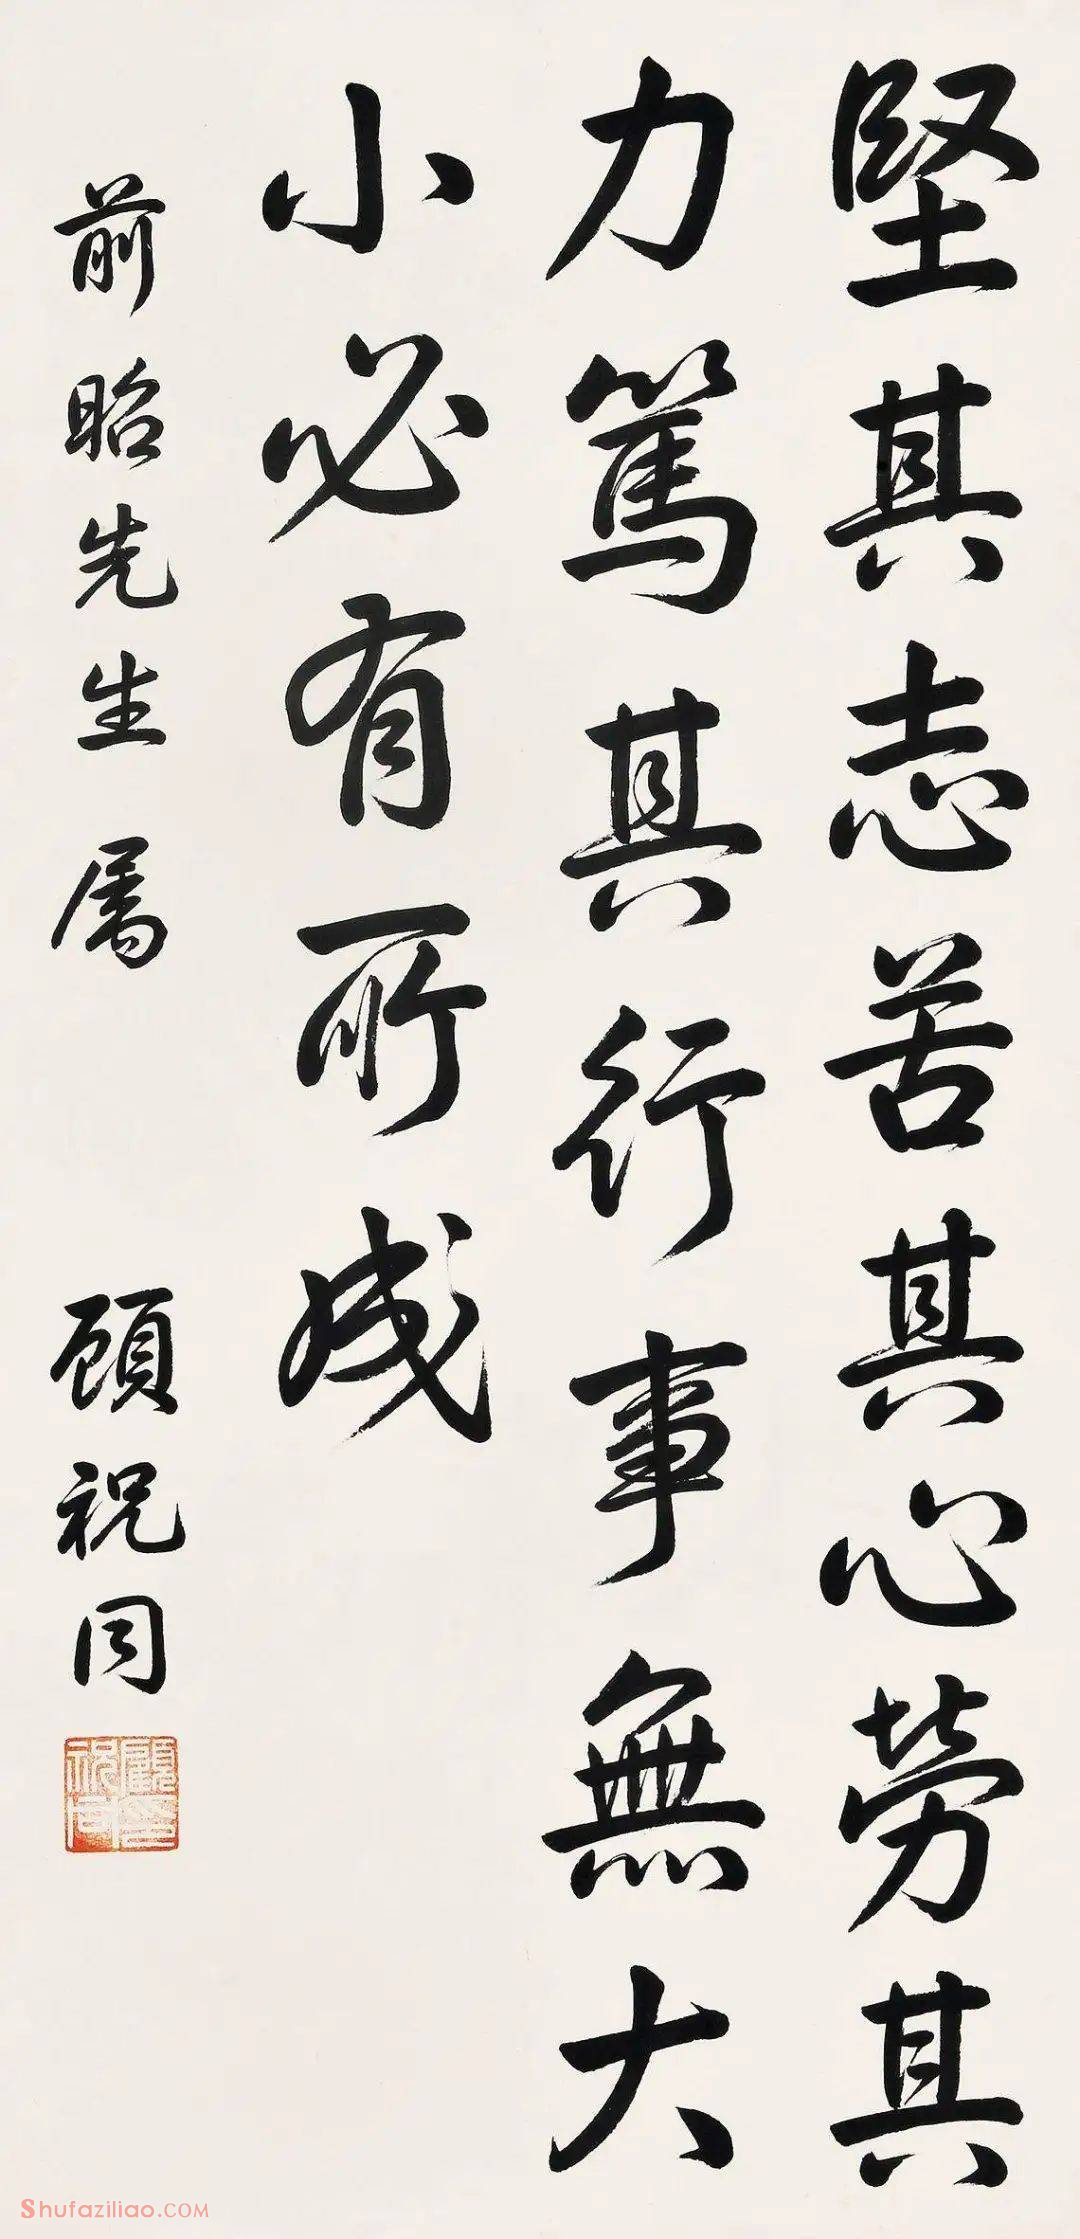 堅其志苦其心勞其
力篤其行事無大
小必有所成
前昭先生属
顧祝同
顧祝同印
Shufaziliao.COM